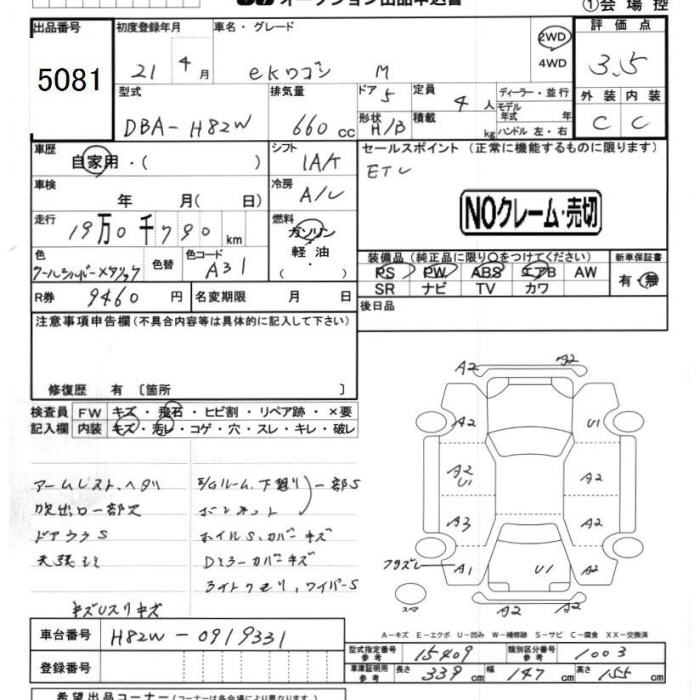 オークション出品申込書 ①会場控
出品番号 初度登録年月 車名・グレード 評価点
5081 21年 4月 eKワゴン M 2WD 4WD 3.5
型式 排気量 ドア 5 定員 4人 ディーラー・並行 外装 内装
DBA-H82W 660cc 形状 H/B 積載 kg モデル年式 年 ハンドル 左・右 C C
車歴 シフト セールスポイント (正常に機能するものに限ります)
自家用・( ) IA/T
車検 冷房
年 月( 日) A/C
NOクレーム・売切
走行 燃料
19万0千790km ガソリン
軽油
色 色替 色コード ・
A31 ( )
装備品 (純正品に限り○をつけてください) 新車保証書
PS PW ABS エアB AW 有・無
SR ナビ TV カワ
R券 9460円 名変期限 月 日 後日品
注意事項申告欄 (不具合内容等は具体的に記入して下さい)
修復歴 有 〔箇所 〕
検査員 FW キズ・飛石・ヒビ割・リペア跡・×要
記入欄 内装 キズ・汚レ・コゲ・穴・スレ・キレ・破レ
A2 A2
A2 U1
A2 U1 A2
A3 A2
A1 U1 A2
A2 A2
アームレスト、ヘタリ
吹出口一部欠
ドアウラS
天張シミ
下廻り 一部S
ボンネット
ホイルS、カバーキズ
Dミラーカバーキズ
ライトクモリ、ワイパーS
スマ
A-キズ E-エクボ U-凹み W-補修跡 S-サビ C-腐食 XX-交換済
車台番号 H82W-0919331
型式指定番号 参考 15409 類別区分番号 参考 1003
登録番号
車庫証明用 参考 長さ 339cm 幅 147cm 高さ 155cm
希望出品コーナー (コーナーは各会場により異なります)